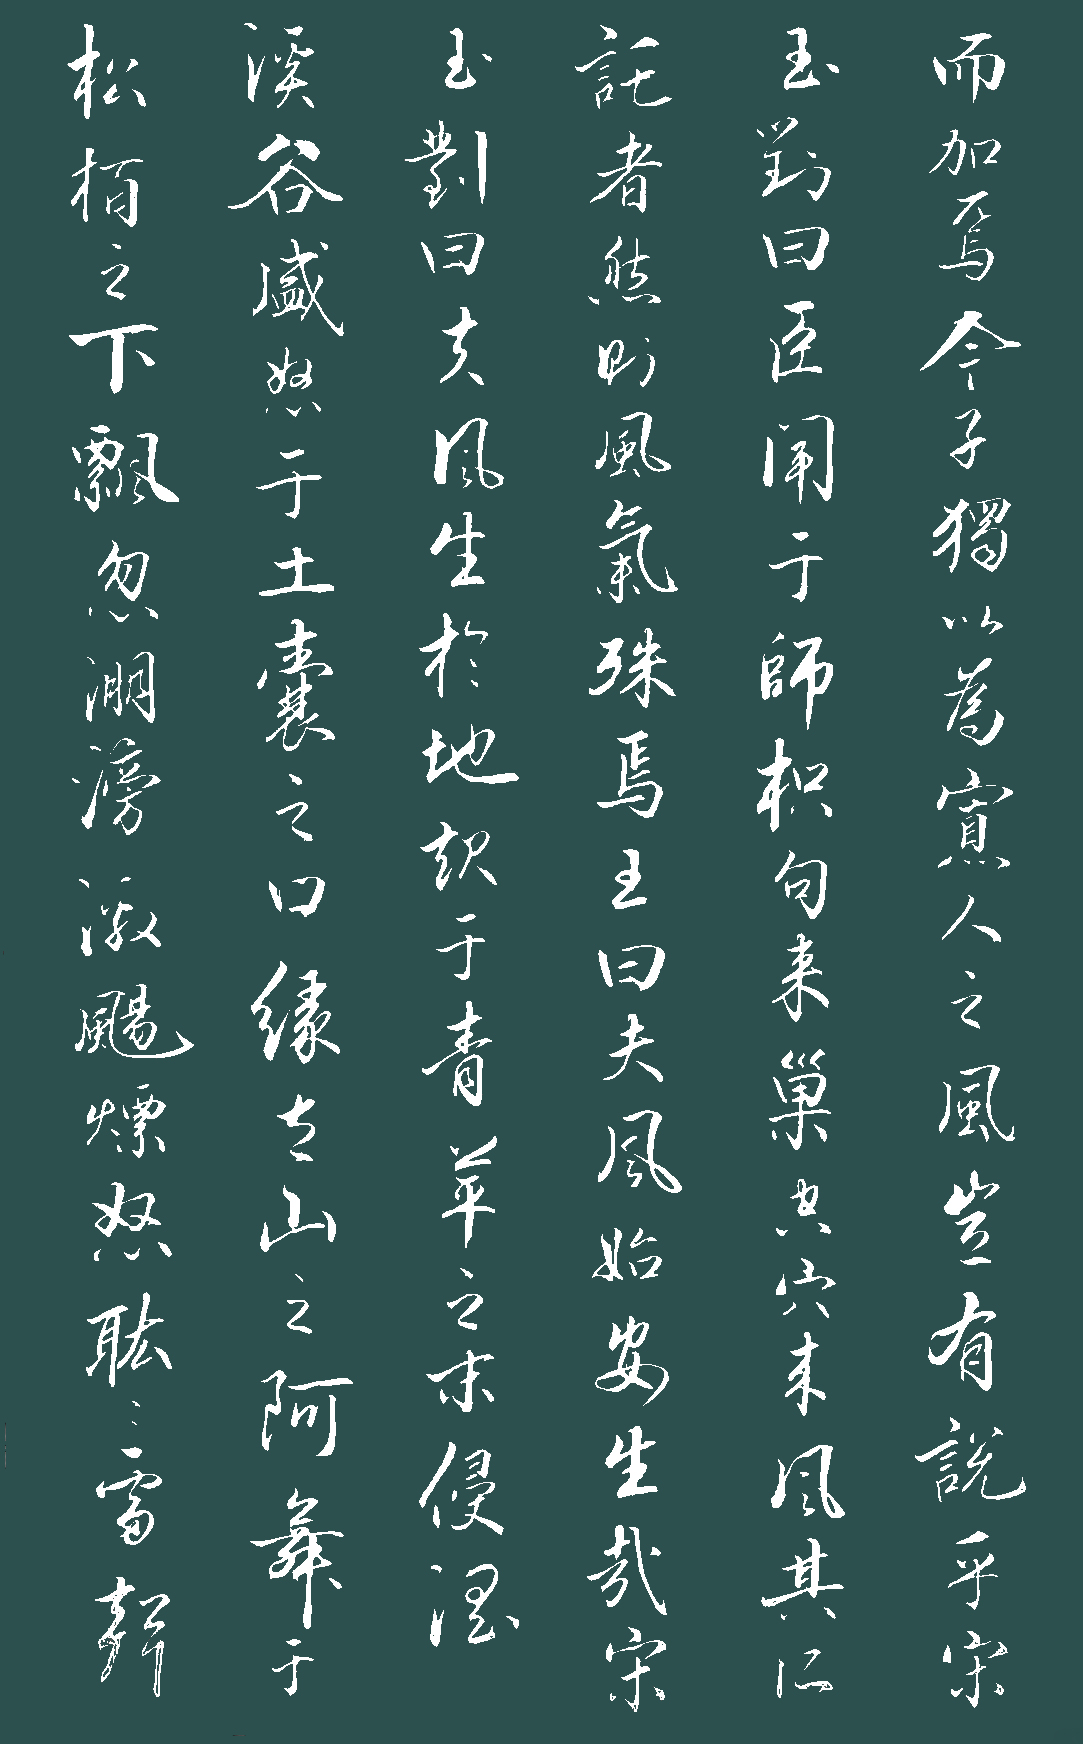 而加焉今子獨以為寡人之風豈有說乎宋
玉對曰臣聞于師枳句来巢空穴来風其所
託者然則風氣殊焉王曰夫風始安生哉宋
玉對曰夫風生於地起于青苹之末侵淫
溪谷盛怒于土囊之口緣太山之阿舞于
松栢之下飄忽淜滂激颺熛怒耾〻雷聲